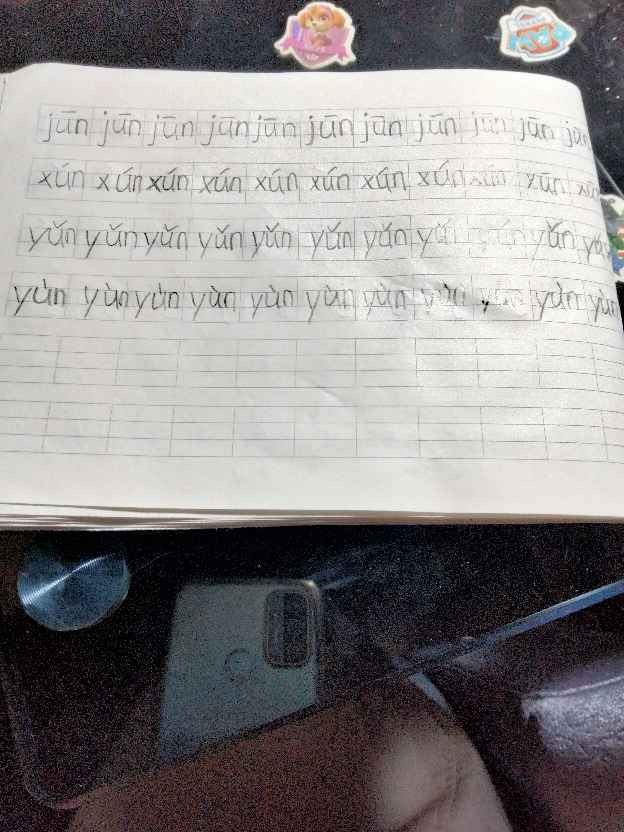 jūn jūn jūn jūn jūn jūn jūn jūn jūn jūn jūn
xún xún xún xún xún xún xún xún xún xún
yǔn yǔn yǔn yǔn yǔn yǔn yǔn yǔn yǔn
yùn yùn yùn yùn yùn yùn yùn yùn yùn yùn